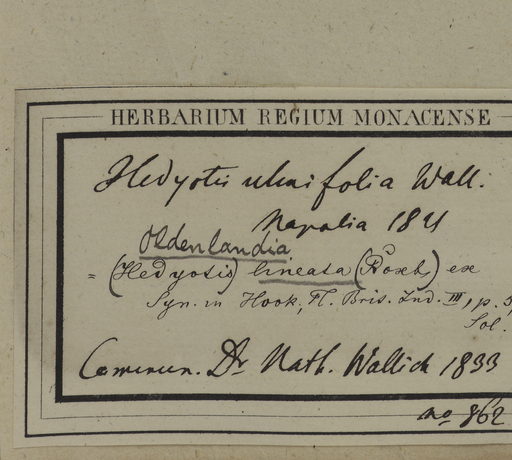 HERBARIUM REGIUM MONACENSE
Hedyotis ulmifolia Wall.
Napalia 1821
Oldenlandia
= (Hedyotis) lineata (Roxb.) ex
Syn. in Hook. Fl. Bris. Ind. III, p.
Sol.
Commun. Dr Nath. Wallich 1833
no 862